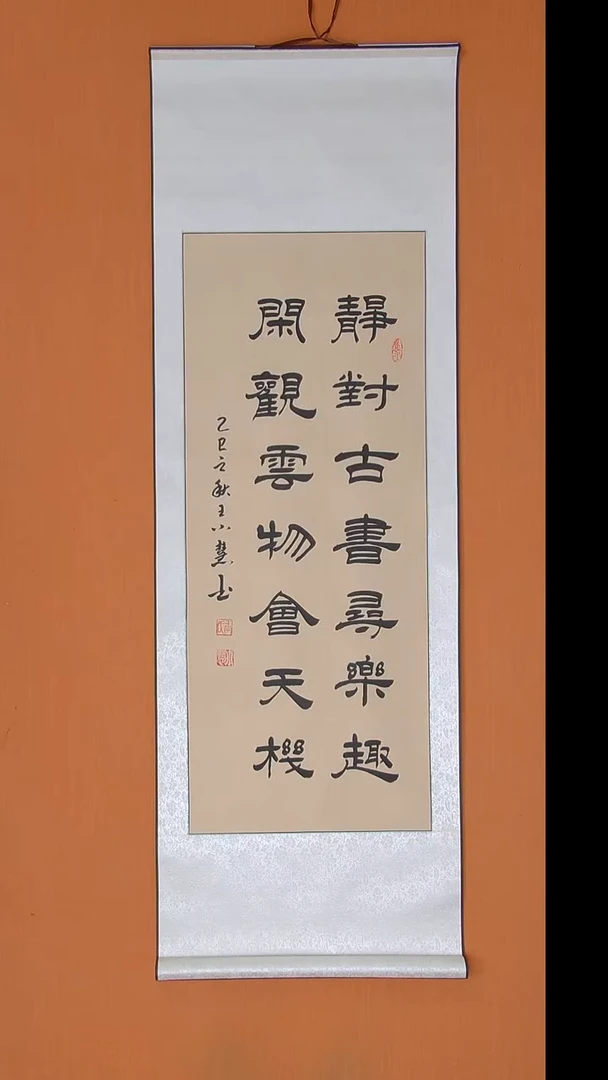 靜對古書尋樂趣
閑觀雲物會天機
乙巳之秋王小慧书